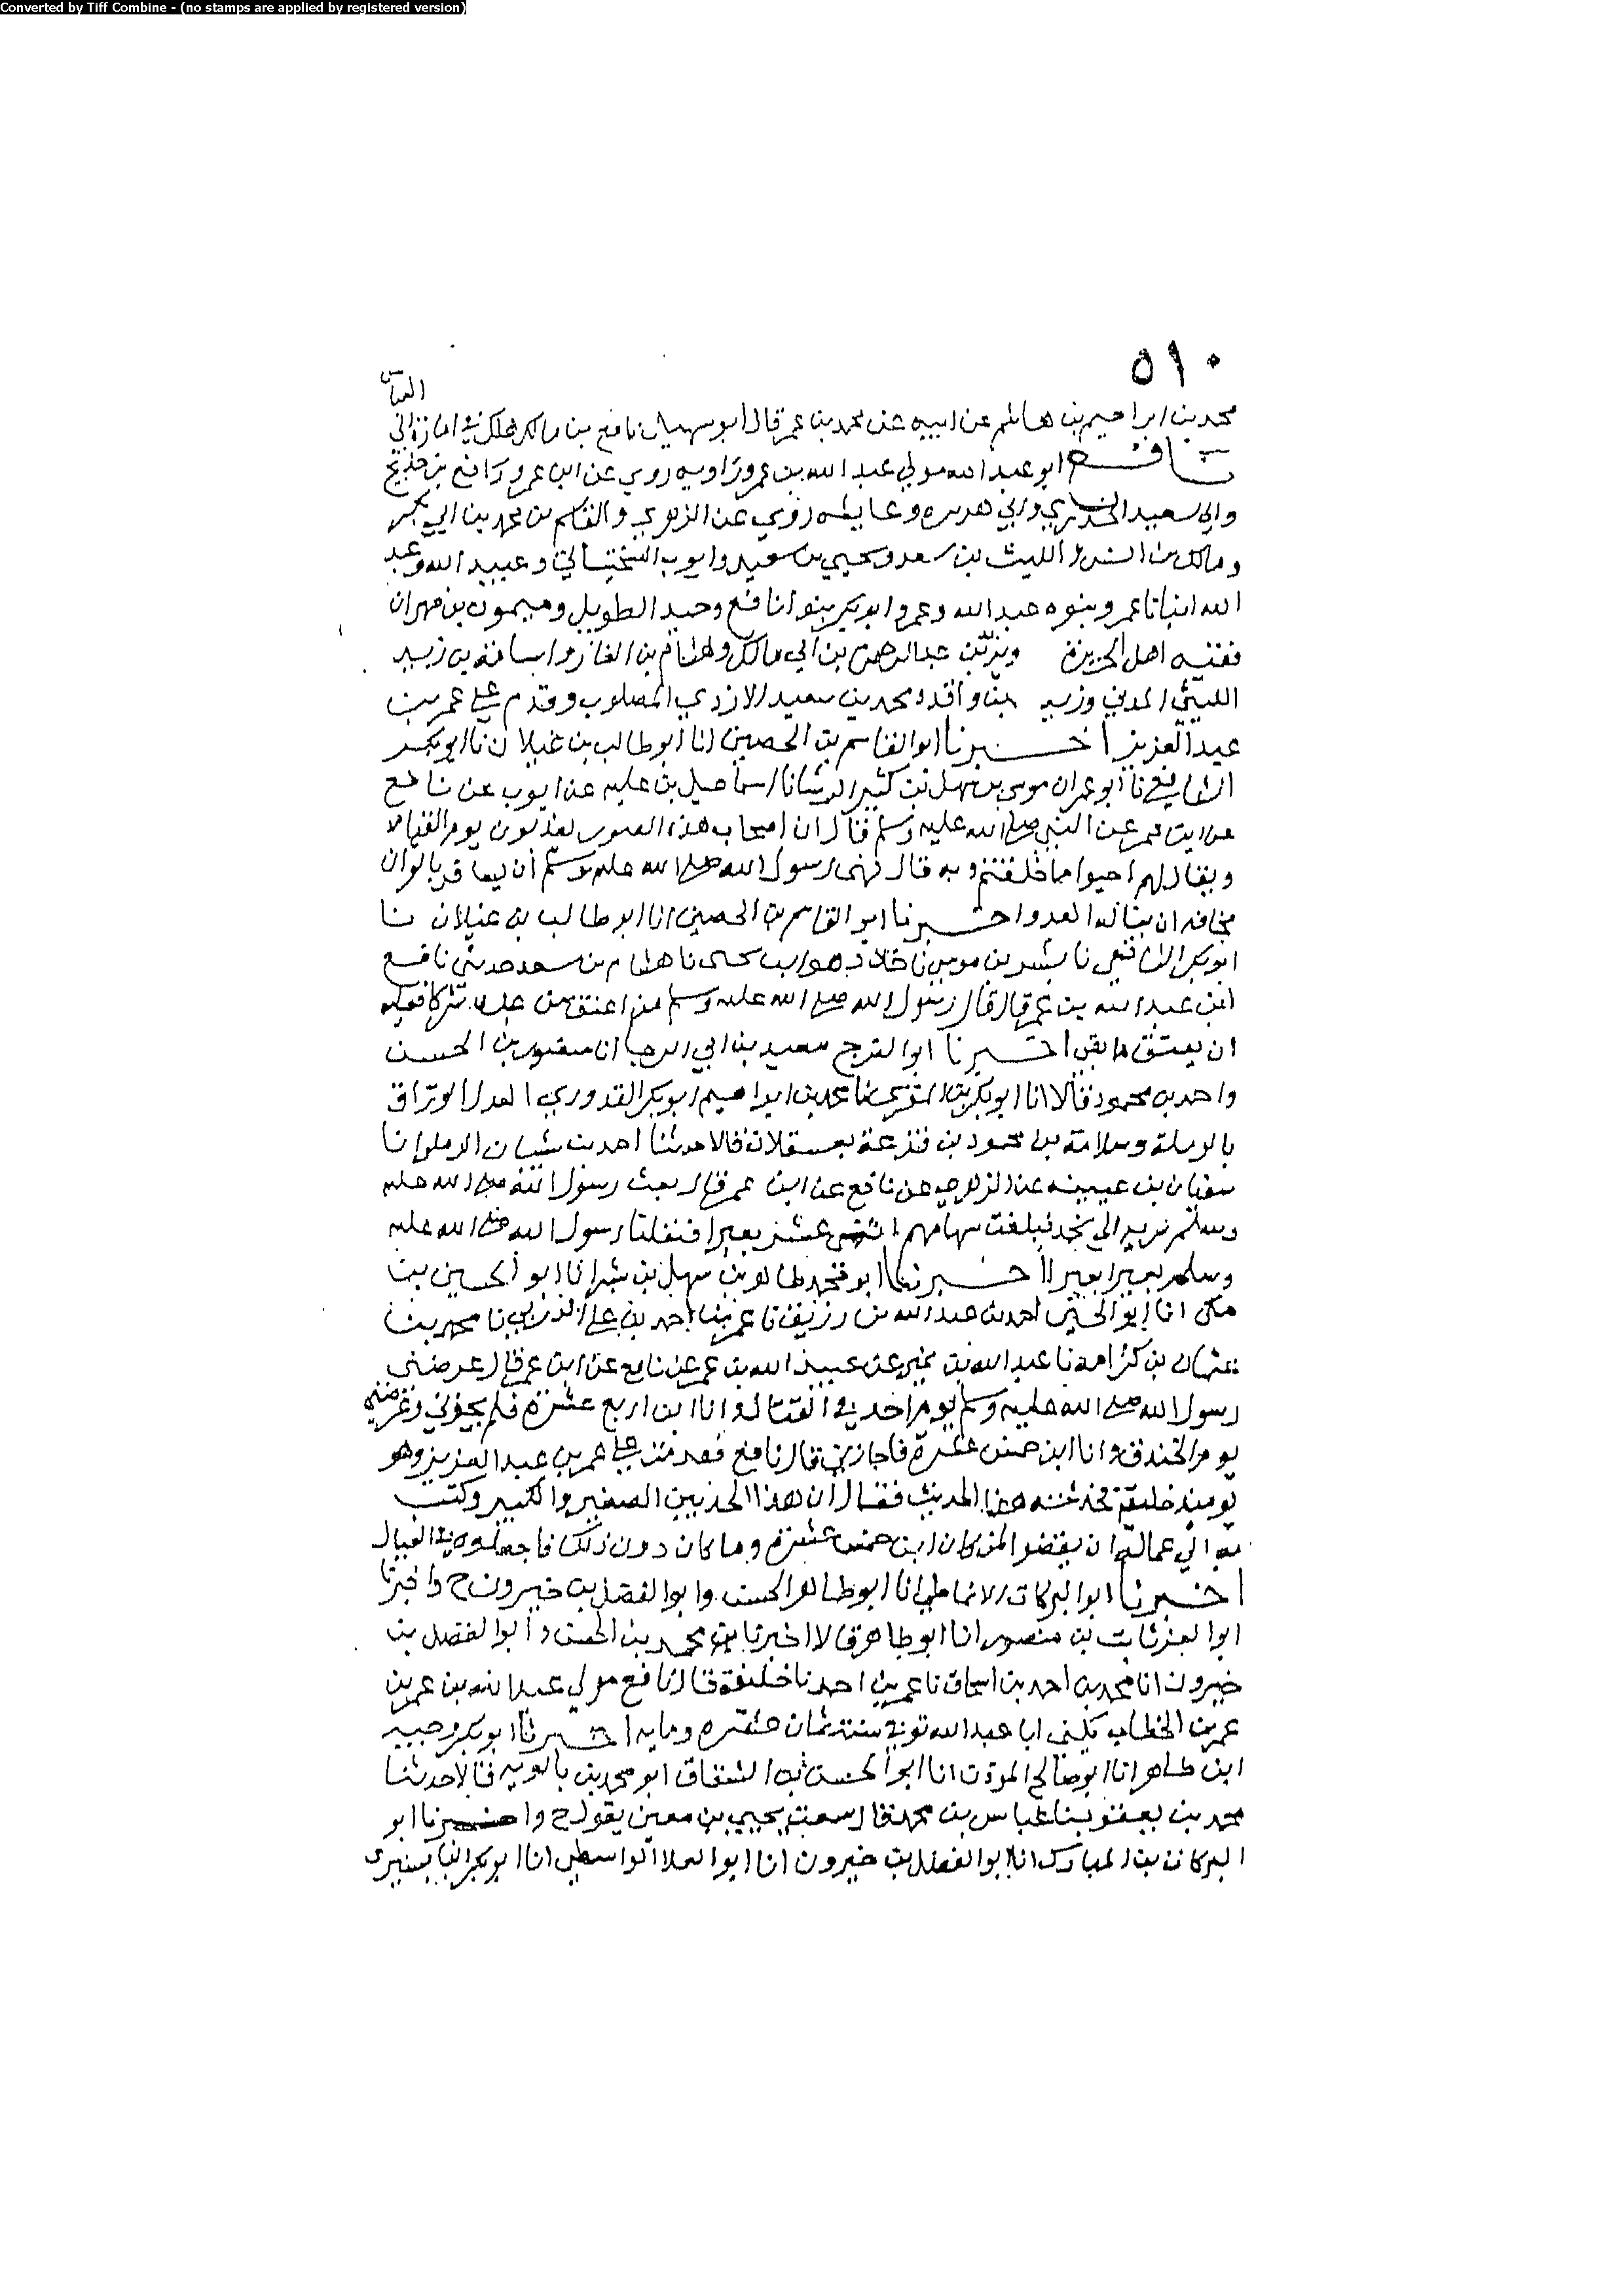 Converted by Tiff Combine - (no stamps are applied by registered version)
٥١٠
محمد بن ابراهيم بن هاشم عن ابيه عن محمد بن عمر قال ابو سهيل نافع بن مالك هلك في امارة ابي
العباس
نافع ابو عبد الله مولي عبد الله بن عمر وراويه روي عن ابن عمر ورافع بن خديج
وابي سعيد الخدري وابي هريره وعايشه روي عن الزهري والقاسم بن محمد بن ابي بكر
ومالك بن انس والليث بن سعد ويحيي بن سعيد وايوب السختياني وعبيد الله وعبد
الله ابنا عمر وبنوه عبد الله وعمر وابو بكر بنوا نافع وحميد الطويل وميمون بن مهران
فقيه اهل الجزيرة عبد الرحمن بن ابي مالك وهشام بن الغاز واسامة بن زيد
الليثي المدني وزيد بن واقد ومحمد بن سعيد الازدي المصلوب وقدم علي عمر بن
عبد العزيز اخبرنا ابو القاسم بن الحصين انا ابو طالب بن غيلان نا ابو بكر
الشافعي نا ابو عمران موسي بن سهل بن كثير الوشا نا اسماعيل بن عليه عن ايوب عن نافع
عن ابن عمر عن النبي صلى الله عليه وسلم قال ان اصحاب هذه الصور يعذبون يوم القيامة
ويقال لهم احيوا ما خلقتم وبه قال نهى رسول الله صلى الله عليه وسلم ان يسافر بالقران
مخافه ان يناله العدو اخبرنا ابو القاسم بن الحصين انا ابو طالب بن غيلان نا
ابو بكر الشافعي نا بشر بن موسي نا خلاد هو ابن يحيى نا هشام بن سعد حدثني نافع
ابن عبد الله بن عمر قال قال رسول الله صلى الله عليه وسلم من اعتق من عبد شركا فعليه
ان يعتق ما بقي اخبرنا ابو الفرج سعيد بن ابي الرجا انا منصور بن الحسن
واحمد بن محمود قالا انا ابو بكر بن المقري نا محمد بن ابراهيم ابو بكر القدوري العدل الوراق
بالرملة وسلامة بن محمود بن قزعة بعسقلان قالا حدثنا احمد بن شيبان الرملي نا
سفيان بن عيينه عن الزهري عن نافع عن ابن عمر قال بعث رسول الله صلى الله عليه
وسلم سرية الي نجد فبلغت سهامهم اثني عشر بعيرا فنفلنا رسول الله صلى الله عليه
وسلم بعيرا بعيرا اخبرنا ابو محمد طاهر بن سهل بن بشر انا ابو الحسين بن
مكى انا ابو الحسين احمد بن عبد الله بن رزيق نا احمد بن علي نا محمد بن
عثمان بن كرامة نا عبد الله بن نمير عن عبيد الله بن عمر عن نافع عن ابن عمر قال عرضني
رسول الله صلى الله عليه وسلم يوم احد في القتال وانا ابن اربع عشرة فلم يجزني وعرضني
يوم الخندق وانا ابن خمس عشرة فاجازني قال نافع فقدمت علي عمر بن عبد العزيز وهو
يوميذ خليفة فحدثته هذا الحديث فقال ان هذا الحد بين الصغير والكبير وكتب
به الي عماله ان يفرضوا لمن كان ابن خمس عشرة وما كان دون ذلك فاجعلوه في العيال
اخبرنا ابو البركات الانماطي انا ابو طاهر احمد بن الحسن وابو الفضل بن خيرون ح واخبرنا
ابو العز ثابت بن منصور انا ابو طاهر قالا اخبرنا محمد بن الحسن وابو الفضل بن
خيرون انا محمد بن احمد بن اسحاق نا عمر بن احمد نا خليفة قال نافع مولي عبد الله بن عمر بن
عمر بن الخطاب يكنى ابا عبد الله توفي سنة ثمان عشره ومايه اخبرنا ابو بكر وجيه
ابن طاهر انا ابو صالح الموذن انا ابو الحسن بن السقا وابو محمد بن بالويه قالا حدثنا
محمد بن يعقوب نا عباس بن محمد قال سمعت يحيي بن معين يقول ح واخبرنا ابو
البركات بن المبارك انا ابو الفضل بن خيرون انا ابو العلا الواسطي انا ابو بكر البابسيري